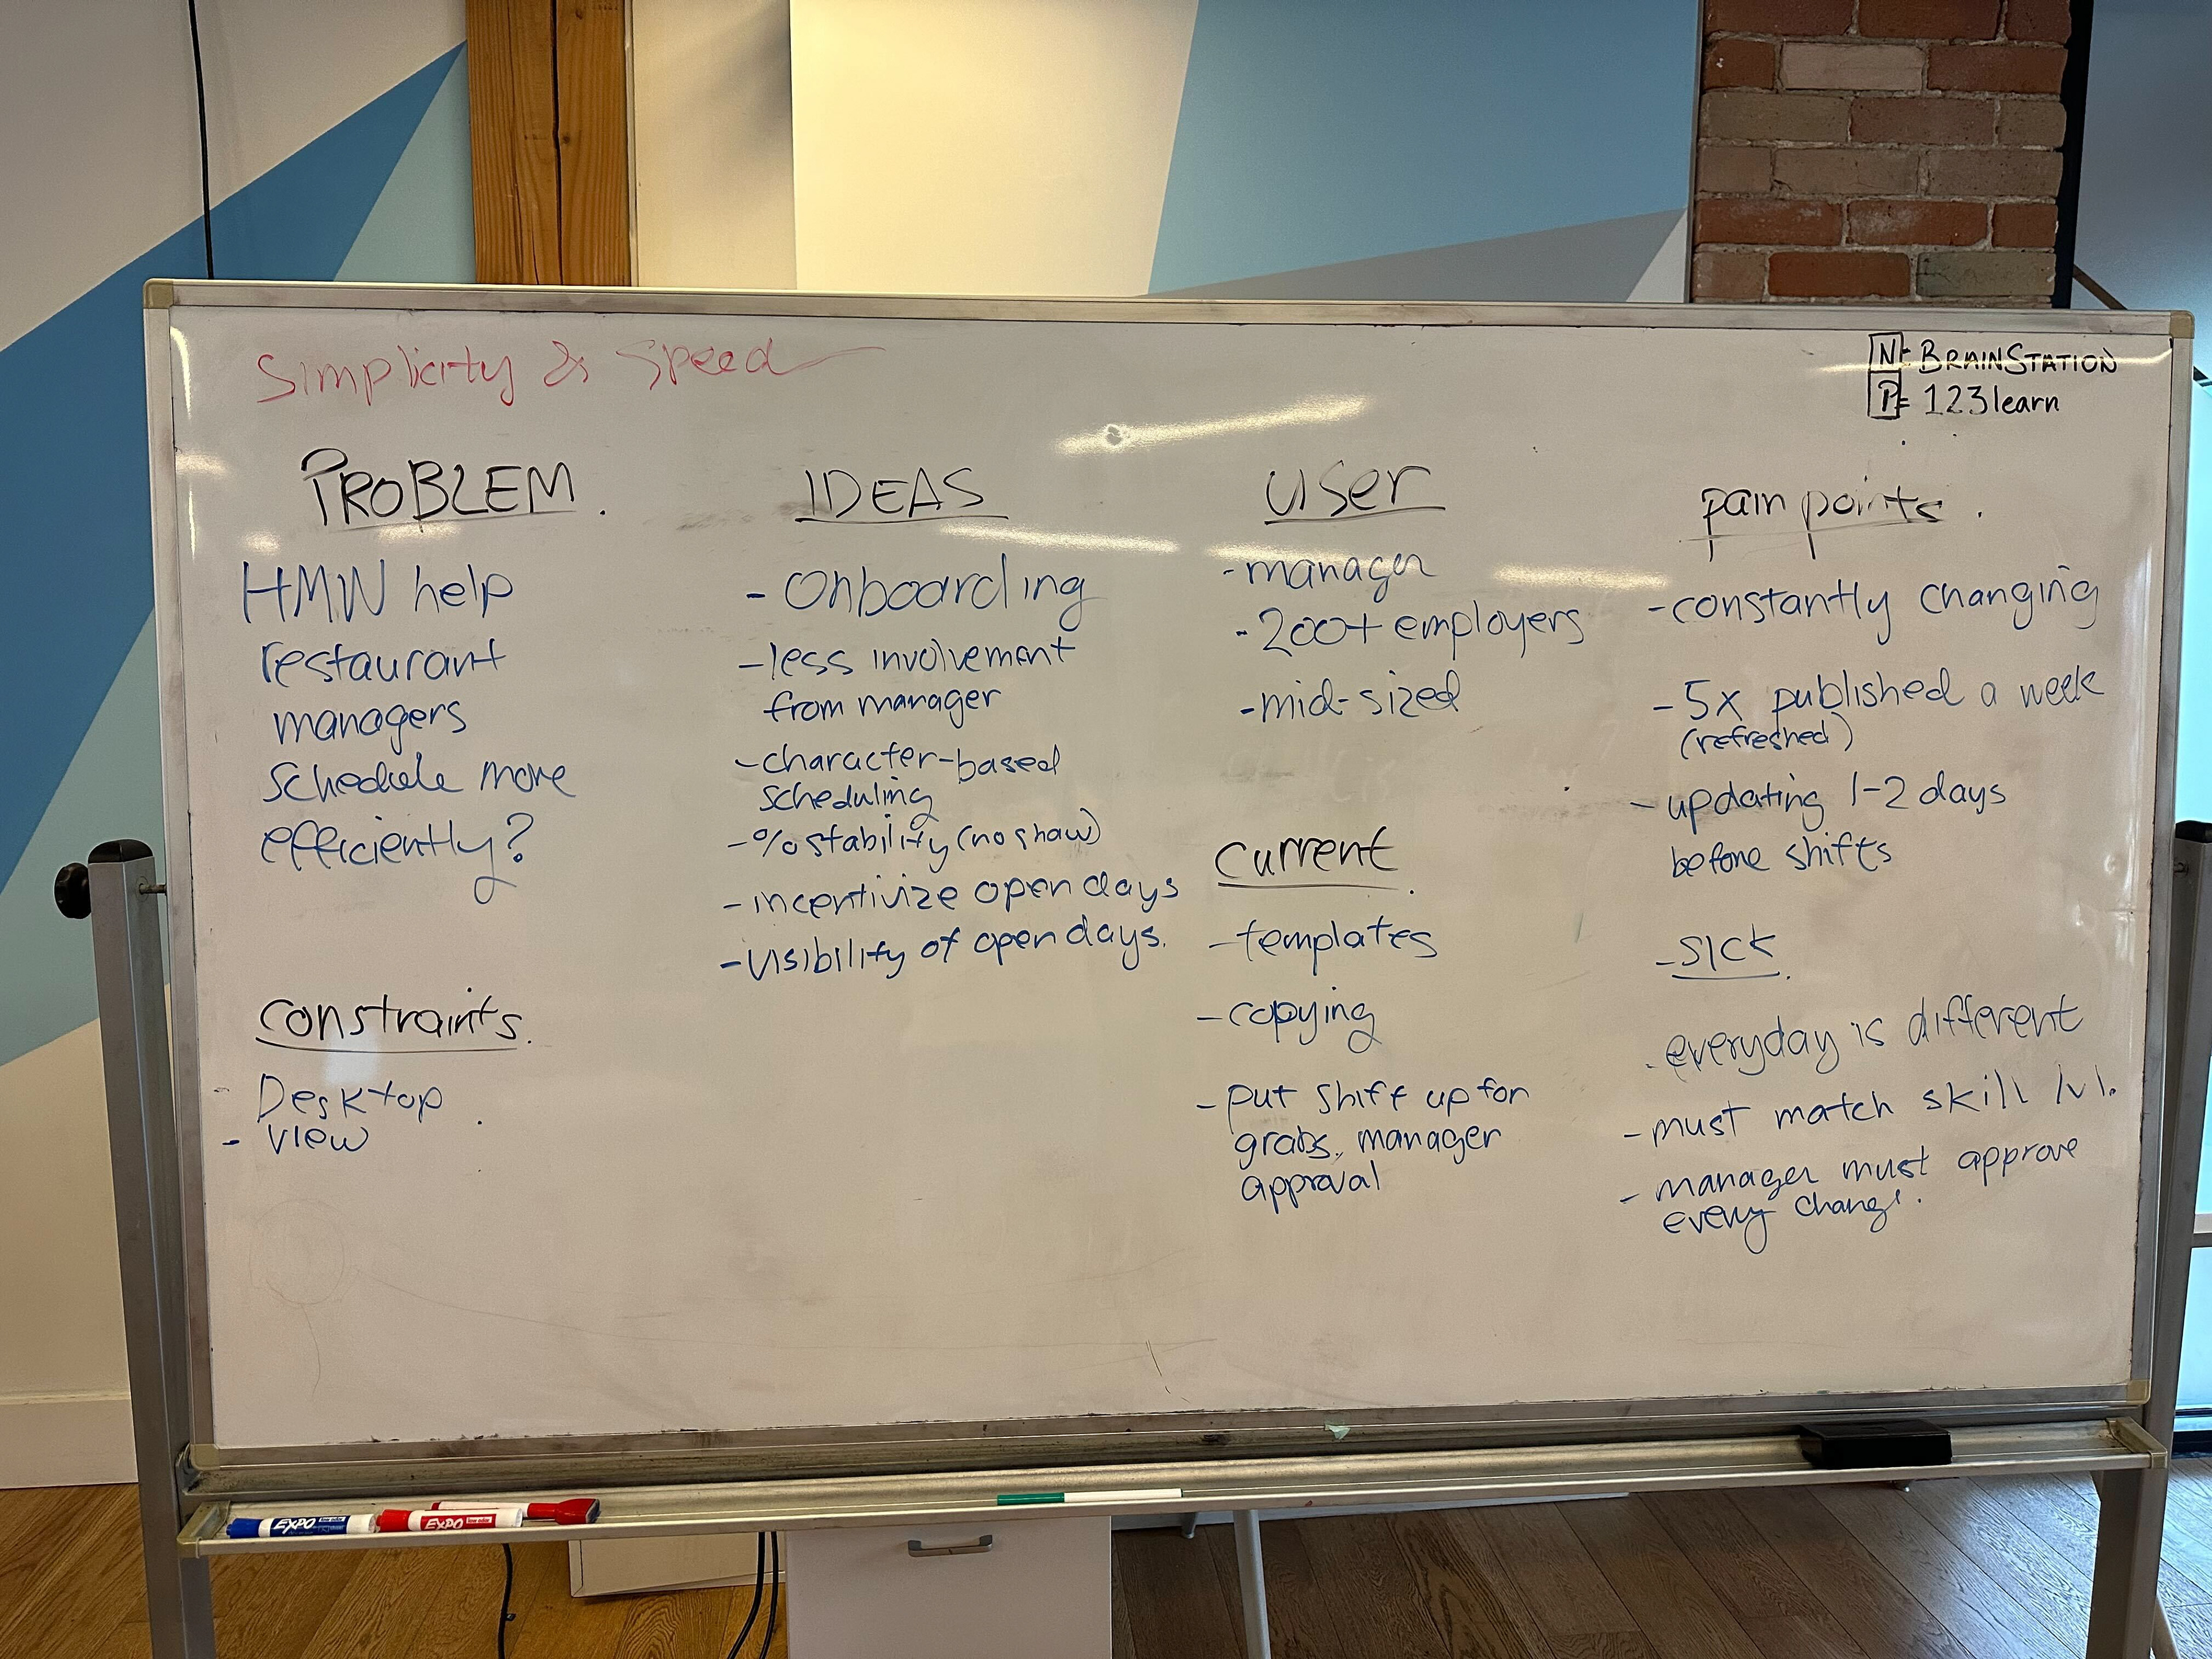 Simplicity & Speed
N: BRAINSTATION
P= 123learn
PROBLEM.
HMW help
restaurant
managers
schedule more
efficiently?
constraints.
- Desktop.
- view
IDEAS
- Onboarding
- less involvement
from manager
- character-based
scheduling
- % stability (no show)
- incentivize open days
- visibility of open days.
user
- manager
- 200+ employers
- mid-sized
current.
- templates
- copying
- put shift up for
grabs, manager
approval
pain points.
- constantly changing
- 5x published a week
(refreshed)
- updating 1-2 days
before shifts
- SICK.
- everyday is different
- must match skill lvl.
- manager must approve
every change.
EXPO
EXPO